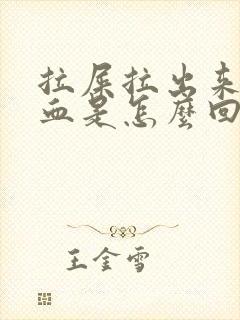 拉屎拉出来
血是怎麼回
王金雪